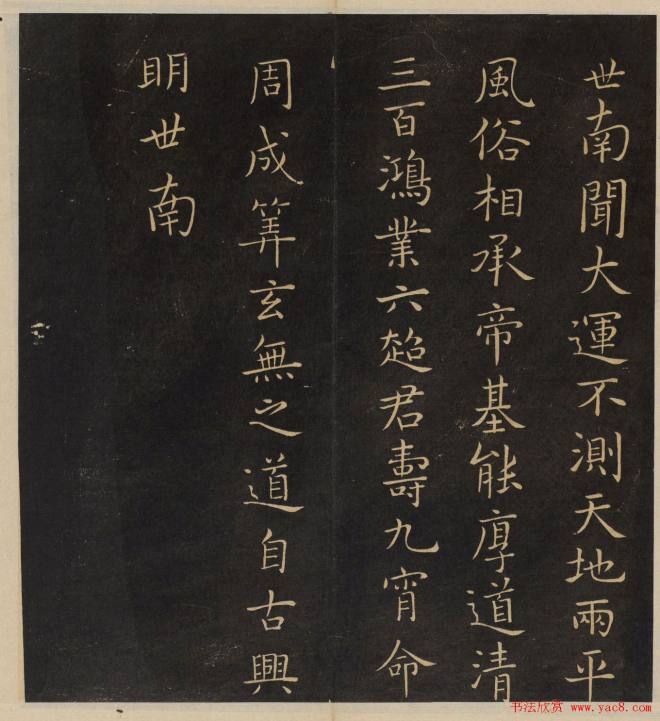 世南聞大運不測天地兩平
風俗相承帝基能厚道清
三百鴻業六超君壽九霄命
周成筭玄無之道自古興
明世南
书法欣赏 www.yac8.com